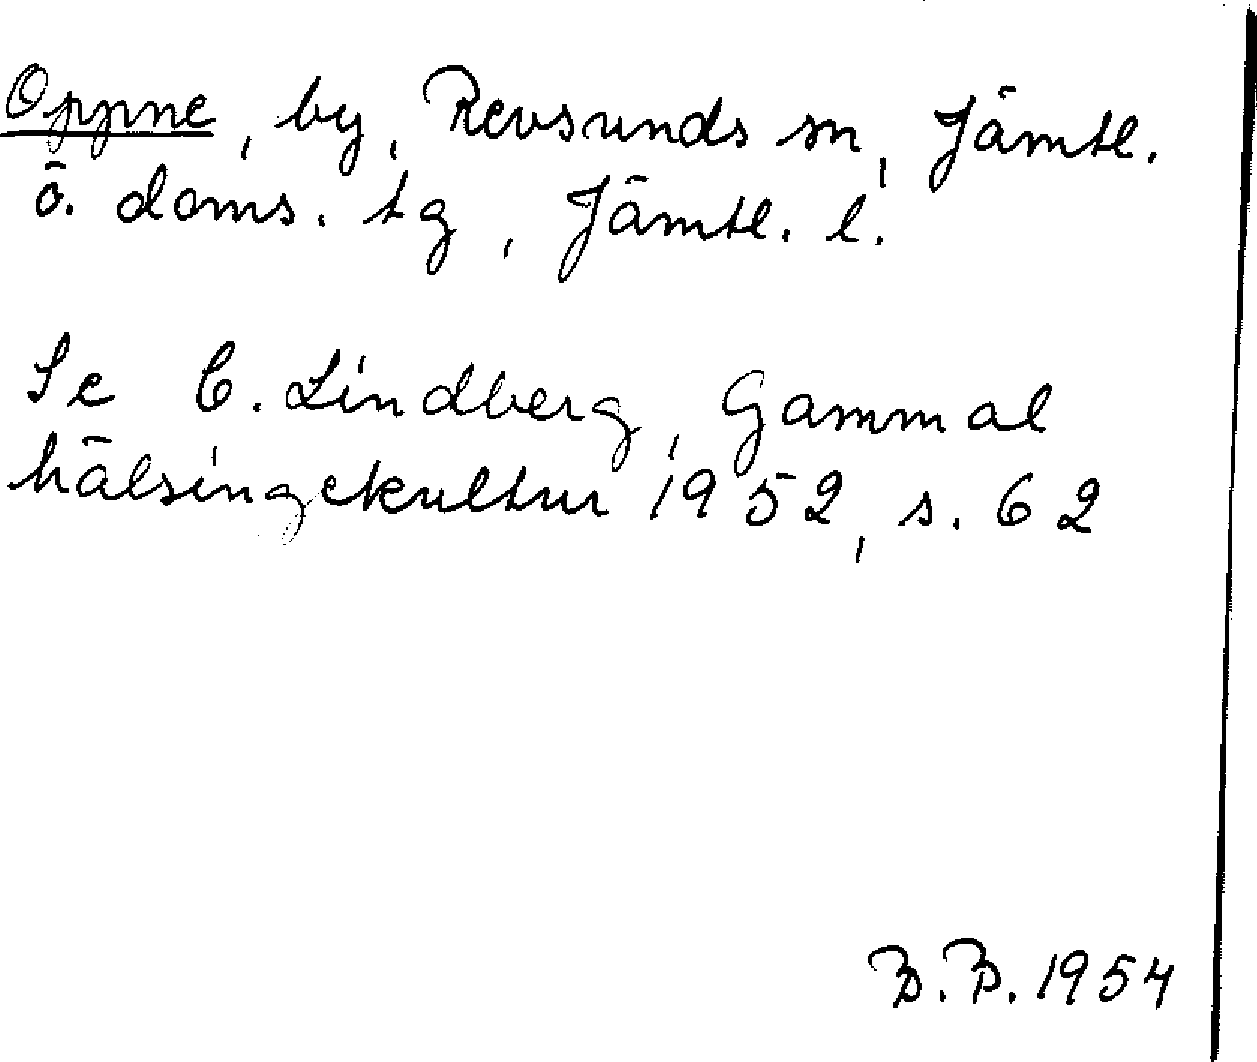 Oppne, by, Revsunds sn, Jämtl.
ö. doms. tg, Jämtl. l.
Se C. Lindberg, Gammal
hälsingekultur 1952, s. 62
B.B. 1954